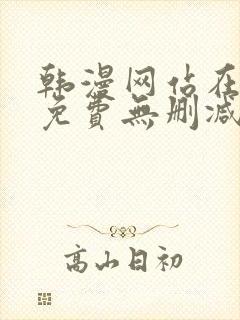 韩漫网站在
免費無删减
高山日初